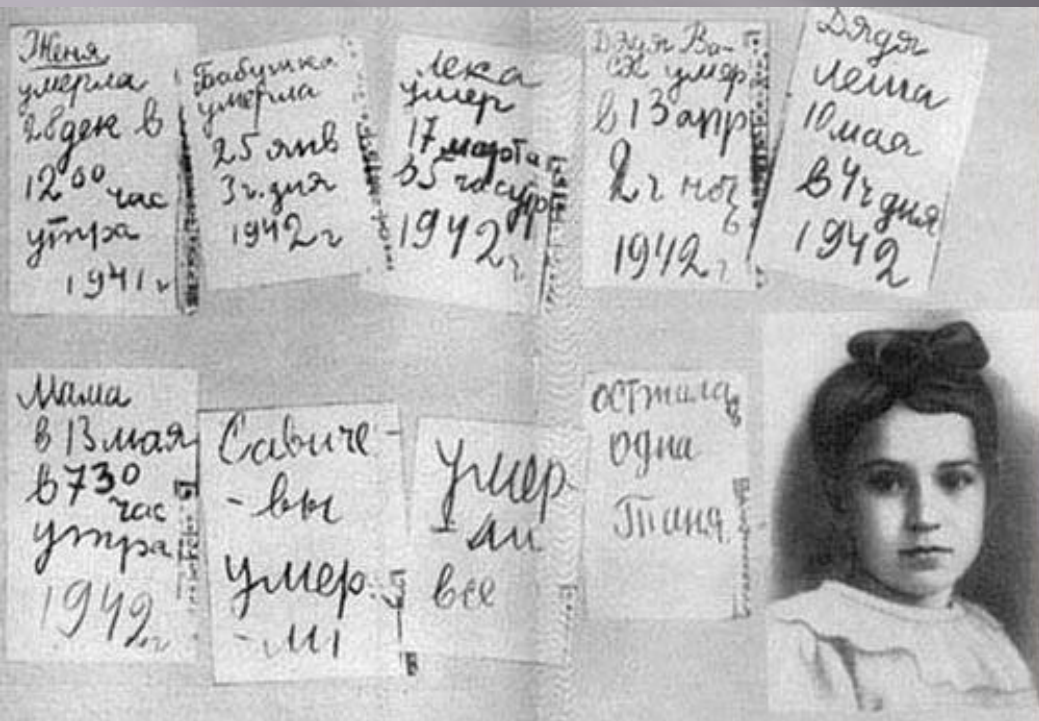 Женя
умерла
28 дек в
12⁰⁰ час
утра
1941 г
Бабушка
умерла
25 янв
3 ч. дня
1942 г
Лека
умер
17 марта
в 5 час утр
1942 г.
Дядя Ва-
ся умер
в 13 апр
2 ч ноч
1942 г
Дядя
Леша
10 мая
в 4 ч дня
1942
Мама
в 13 мая
в 730
час
утра
1942 г
Савиче-
-вы
умер
-ли
Умер
-ли
все
осталась
одна
Таня.